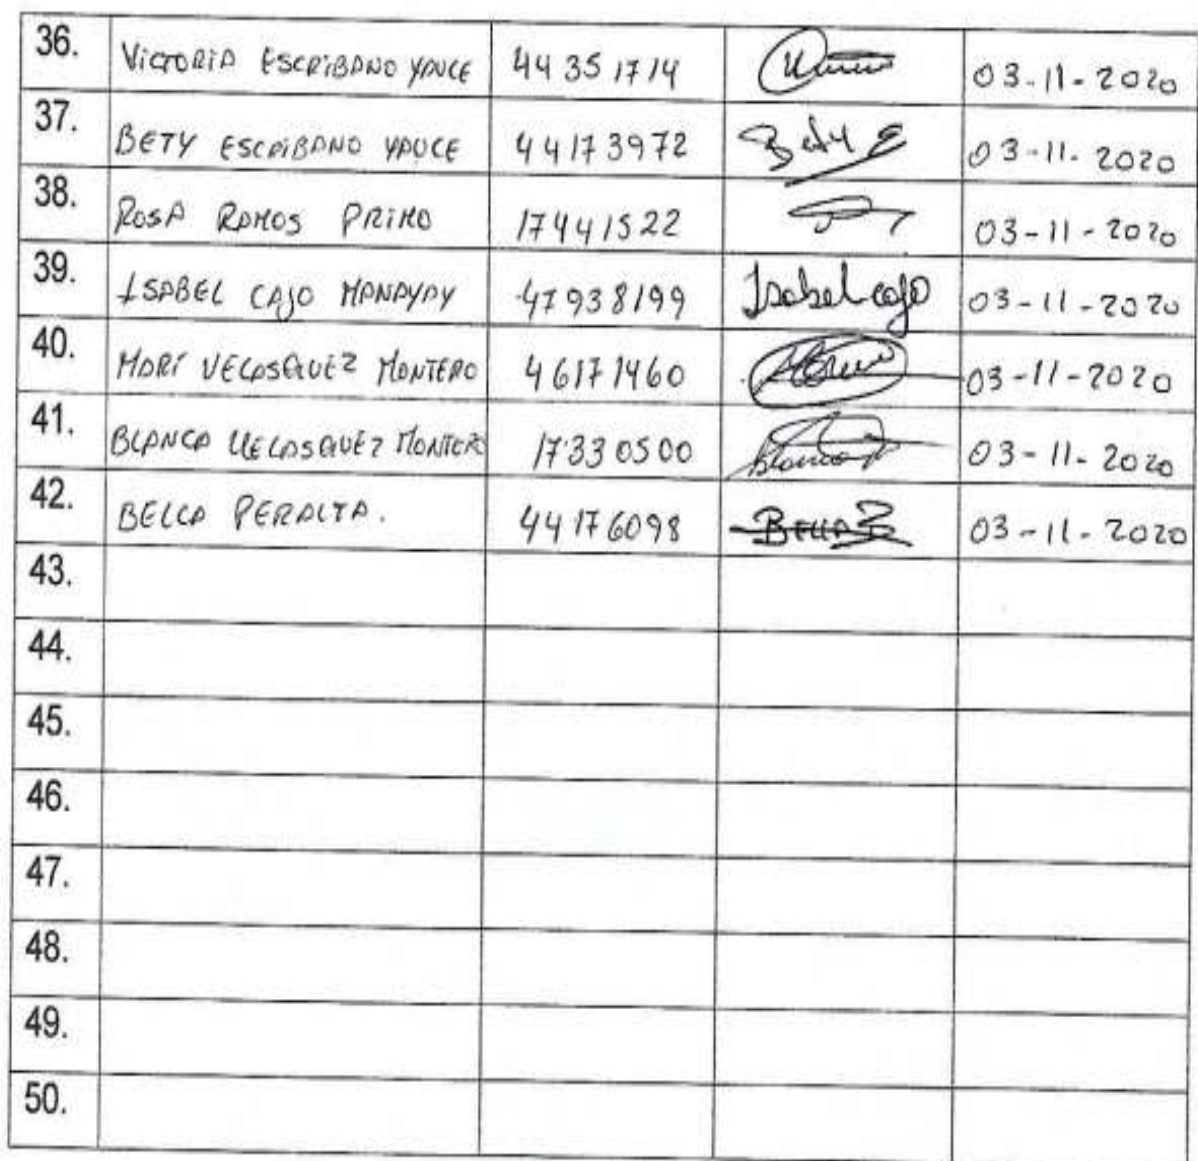 36. VICTORIA ESCRIBANO YAUCE 44351714 03-11-2020
37. BETY ESCRIBANO YAUCE 44173972 Bety E 03-11-2020
38. ROSA RAMOS PRIMO 17441522 03-11-2020
39. ISABEL CAJO MANAYAY 47938199 Isabel cajo 03-11-2020
40. MARI VELASQUEZ MONTERO 46171460 03-11-2020
41. BLANCA VELASQUEZ MONTERO 17330500 Blanca 03-11-2020
42. BELLA PERALTA. 44176098 BELLA 03-11-2020
43.
44.
45.
46.
47.
48.
49.
50.